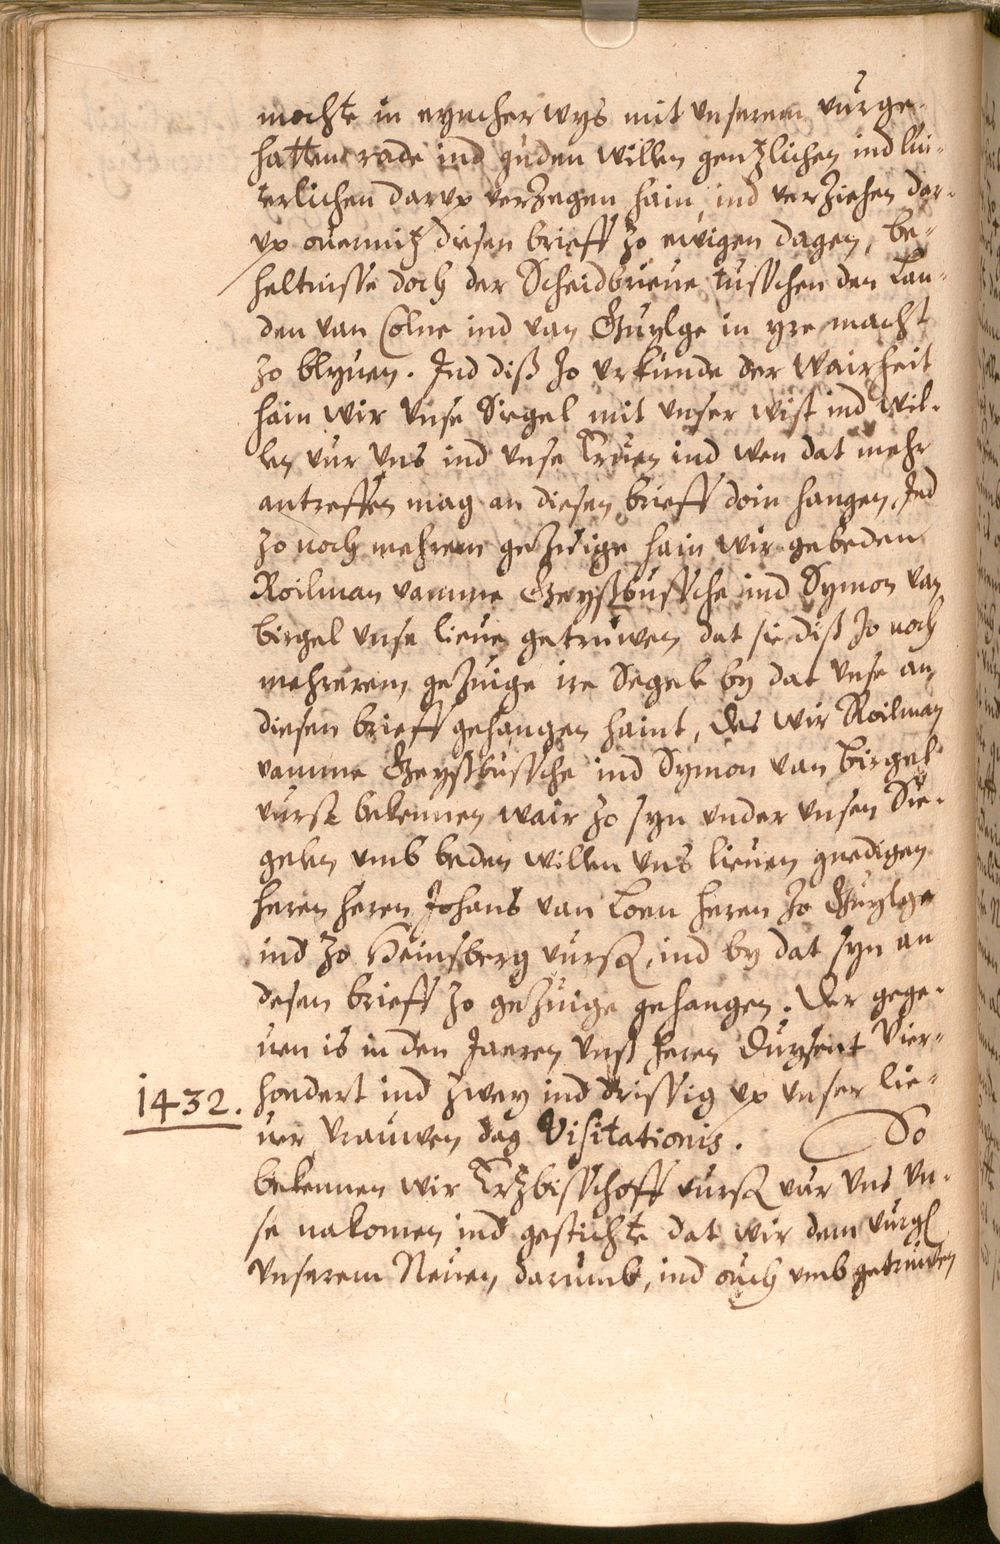 mochte in eyncherwys mit unserem vurge-
hatten rade ind guden willen gentzlichen ind lu-
terlichen darup verzegen hain, ind verziehen dar-
up overmitz diesen brieff zo ewigen dagen, be-
heltnisse doch der Scheidbrieue tusschen den Lan-
den van Colne ind van Guylge in yre macht
zo blyuen. Ind diß zo urkunde der wairheit
hain wir unse Siegel mit unser wist ind wil-
len vur uns ind unse Eruen ind wen dat mehr
antreffen mag an diesen brieff doin hangen, Ind
zo noch mehrem gezuige hain wir gebeden
Roilman vamme Geysbussche ind Symon van
Birgel unse lieue getruwen dat sie diß zo noch
mehrerem gezuige ire Segele by dat unse an
diesen brieff gehangen haint, des wir Roilman
vamme Geysbussche ind Symon van Birgel
vursz bekennen wair zo syn under unsen Sie-
gelen umb beden willen uns lieuen gnedigen
heren heren Johans van Loen heren zo Guylge
ind zo Heinsberg vursz, ind by dat syn an
desen brieff zo gezuige gehangen. Der gege-
uen is in den Jaeren unß heren Duysent Vier-
1432. hondert ind zwey ind drissig up unser lie-
uer vrauwen dag Visitationis. So
bekennen wir Ertzbisschoff vursz vur uns un-
se nakomen ind gestichte dat wir dem vurgl
unserem Neuen darumb, ind ouch umb getruwen